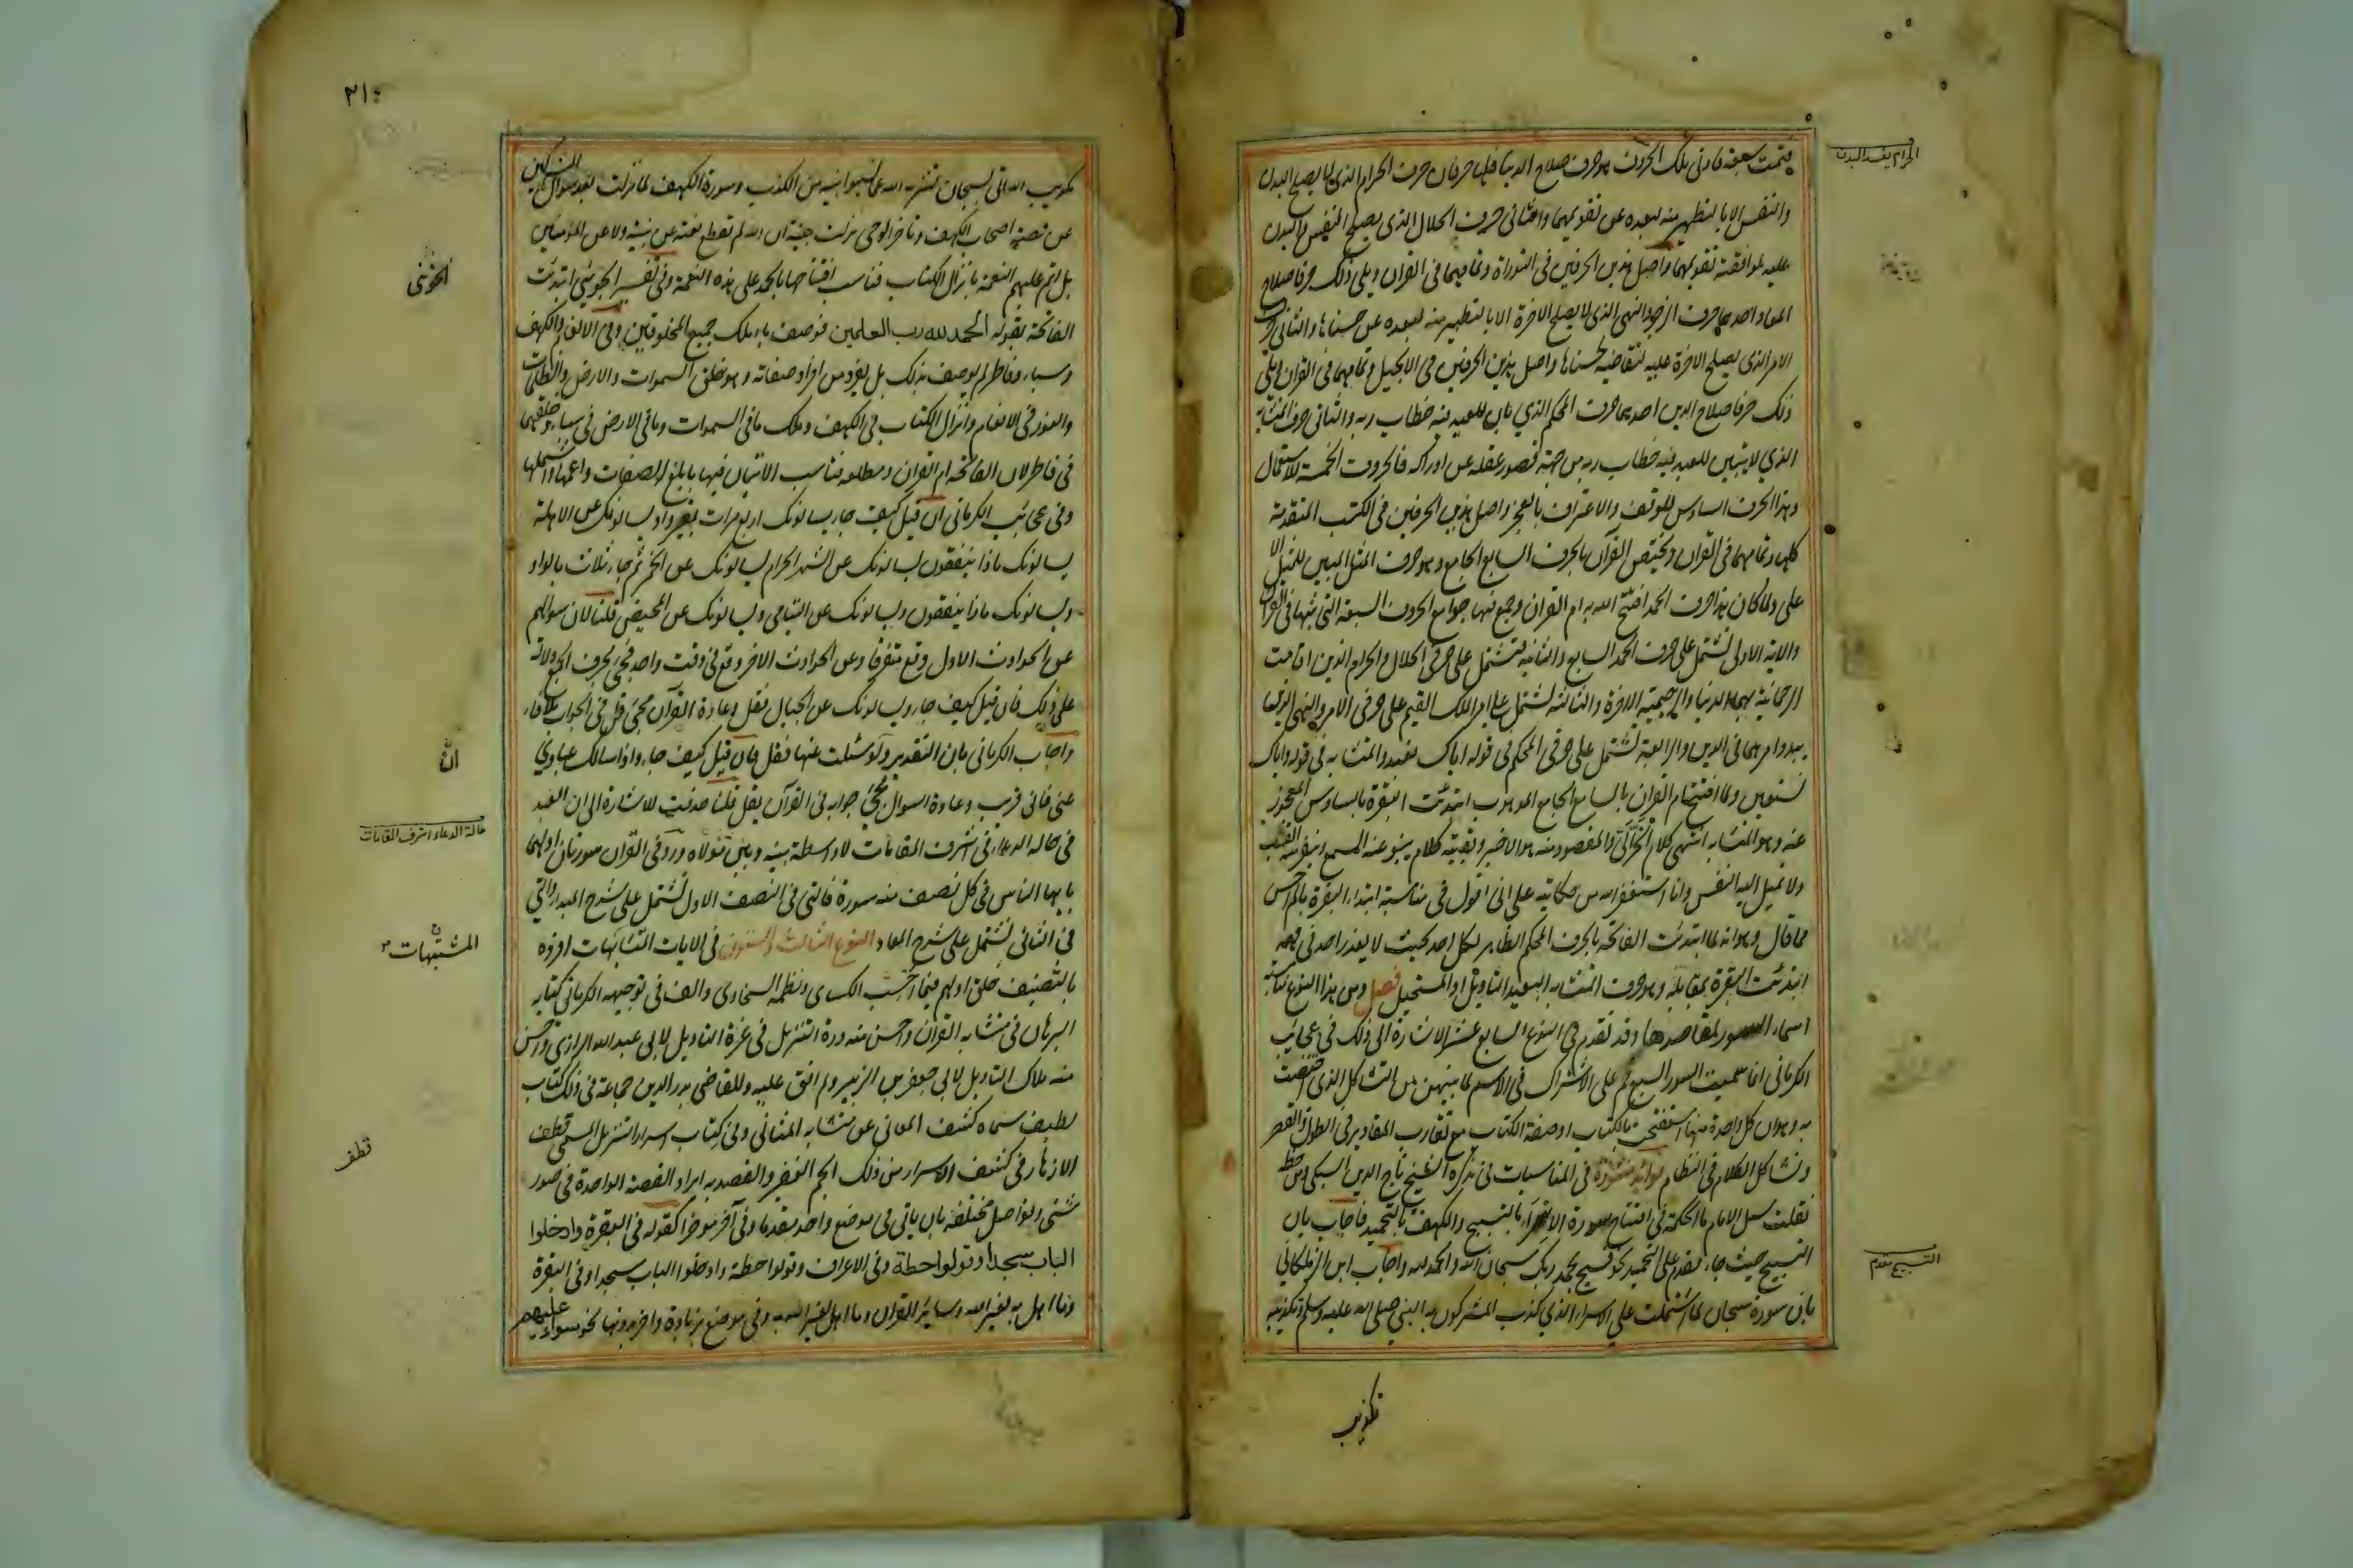 فتمت سبعة فادنى تلك الحروف هو حرف صلاح الدنيا فلها حرفان حرف الحرام الذي لا يصلح البدن
والنفس الا بالتطهير منه لبعده عن تقويمهما والثاني حرف الحلال الذي يصلح النفس والبدن
عليه لموافقته تقويمهما واصل هذين الحرفين في التوراة وتمامهما في القران ويلي ذلك حرفا صلاح
المعاد احدهما حرف الزجر والنهي الذي لا يصلح الاخرة الا بالتطهير منه لبعده عن حسناها والثاني حرف
الامر الذي يصلح الاخرة عليه لتقاضيه لحسناها واصل هذين الحرفين في الانجيل وتمامهما في القران ويلي
ذلك حرفا صلاح الدين احدهما حرف المحكم الذي بان للعبد فيه خطاب ربه والثاني حرف المتشابه
الذي لا يتبين للعبد فيه خطاب ربه من جهة قصور عقله عن ادراكه فالحروف الخمسة للاستعمال
وهذا الحرف السادس للوقوف والاعتراف بالعجز واصل هذين الحرفين في الكتب المتقدمة
كلها وتمامهما في القران ويختص القرآن بالحرف السابع الجامع وهو حرف المثل المبين للمثل الا
على ولما كان هذا حرف الحمد افتتح الله به ام القران وجمع فيها جوامع الحروف السبعة التي بثها في القران
والاية الاولى تشتمل على حرف الحمد السابع والثانية تشتمل على حرفي الحلال والحرام الذين اقامت
الرحمانية بهما الدنيا والرحيمية الاخرة والثالثة تشتمل على امر الملك القيم على حرفي الامر والنهي الذين
يبدو امرهما في الدين والرابعة تشتمل على حرفي المحكم في قوله اياك نعبد والمتشابه في قوله واياك
نستعين ولما افتتح ام القران بالسابع الجامع الموهوب ابتدئت البقرة بالسادس المعجوز
عنه وهو المتشابه انتهى كلام الحرالي والمقصود منه هو الاخير وبقيته كلام ينبو عنه السمع وينفر منه القلب
ولا تميل اليه النفس وانا استغفر الله من حكايته على اني اقول في مناسبة ابتداء البقرة بالم احسن
مما قال وهو انه لما ابتدئت الفاتحة بالحرف المحكم الظاهر لكل احد بحيث لا يعذر احد في فهمه
ابتدئت البقرة بمقابله وهو حرف المتشابه البعيد التاويل او المستحيل فصل ومن هذا النوع مناسبة
اسماء السور لمقاصدها وقد تقدم في النوع السابع عشر الاشارة الى ذلك في عجايب
الكرماني انما سميت السور السبع حم على الاشتراك في الاسم لما بينهن من التشاكل الذي اختصت
به وهو ان كل واحدة منها استفتحت بالكتاب او صفة الكتاب مع تقارب المقادير في الطول والقصر
وتشاكل الكلام في النظام فوائد منثورة في المناسبات في تذكرة الشيخ تاج الدين السبكي ومن خطه
نقلت سئل الامام ما الحكمة في افتتاح سورة الاسراء بالتسبيح والكهف بالتحميد فاجاب بان
التسبيح حيث جاء مقدم على التحميد نحو فسبح بحمد ربك سبحان الله والحمد لله واجاب ابن الزملكاني
بان سورة سبحان لما اشتملت على الاسراء الذي كذب المشركون به النبي صلى الله عليه وسلم وتكذيبه
تكذيب
الحرام يفسد البدن
التسبيح مقدم
٢١٠
تكذيب الله اتى بسبحان لتنزيه الله عما نسبوا نبيه من الكذب وسورة الكهف لما نزلت بعد سوال المشركين
عن قصة اصحاب الكهف وتاخر الوحي نزلت مبينة ان الله لم يقطع نعمته عن نبيه ولا عن المؤمنين
بل اتم عليهم النعمة بانزال الكتاب فناسب افتتاحها بالحمد على هذه النعمة وفي تفسير الخويي ابتدئت
الفاتحة بقوله الحمد لله رب العلمين فوصف بانه ملك جميع المخلوقين وفي الانعام والكهف
وسباء وفاطر لم يوصف بذلك بل بفرد من افراد صفاته وهو خلق السموات والارض والظلمات
والنور في الانعام وانزال الكتاب في الكهف وملك ما في السموات وما في الارض في سباء وخلقهما
في فاطر لان الفاتحة ام القران ومطلعه فناسب الاتيان فيها بابلغ الصفات واعمها واشملها
وفي عجائب الكرماني ان قيل كيف جاء يسالونك اربع مرات بغير واو يسالونك عن الاهلة
يسالونك ماذا ينفقون يسالونك عن الشهر الحرام يسالونك عن الخمر ثم جاء ثلاث بالواو
ويسالونك ماذا ينفقون ويسالونك عن اليتامى ويسالونك عن المحيض قلنا لان سوالهم
عن الحوادث الاول وقع متفرقا وعن الحوادث الاخر وقع في وقت واحد فجئ بحرف الجمع دلالة
على ذلك فان قيل كيف جاء ويسالونك عن الجبال فقل وعادة القرآن مجئ قل في الجواب بلا فاء
واجاب الكرماني بان التقدير ولو سئلت عنها فقل فان قيل كيف جاء واذا سالك عبادي
عني فاني قريب وعادة السوال يجئ جوابه في القرآن بقل قلنا حذفت للاشارة الى ان العبد
في حالة الدعاء في اشرف المقامات لا واسطة بينه وبين مولاه ورد في القرآن سورتان اولهما
يا ايها الناس في كل نصف منه سورة فالتي في النصف الاول تشتمل على شرح المبدا والتي
في الثاني تشتمل على شرح المعاد النوع الثالث والستون في الايات المتشابهات افرده
بالتصنيف خلق اولهم فيما احسب الكسائي ونظمه السخاوي والف في توجيهه الكرماني كتابه
البرهان في متشابه القران واحسن منه درة التنزيل في غرة التاويل لابي عبد الله الرازي واحسن
منه ملاك التاويل لابي جعفر بن الزبير ولم اقف عليه وللقاضي بدر الدين جماعة في ذلك كتاب
لطيف سماه كشف المعاني عن متشابه المثاني وفي كتاب اسرار التنزيل المسمى قطف
الازهار في كشف الاسرار من ذلك الجم الغفير والقصد به ايراد القصة الواحدة في صور
شتى وفواصل مختلفة بان ياتي في موضع واحد مقدما وفي آخر موخرا كقوله في البقرة وادخلوا
الباب سجدا وقولوا حطة وفي الاعراف وقولوا حطة وادخلوا الباب سجدا وفي البقرة
وما اهل به لغير الله وسائر القران وما اهل لغير الله به وفي موضع بزيادة وفي اخر بدونها نحو سواء عليهم
الخويي
ان
حالة الدعاء اشرف المقامات
المشتبهات
قطف